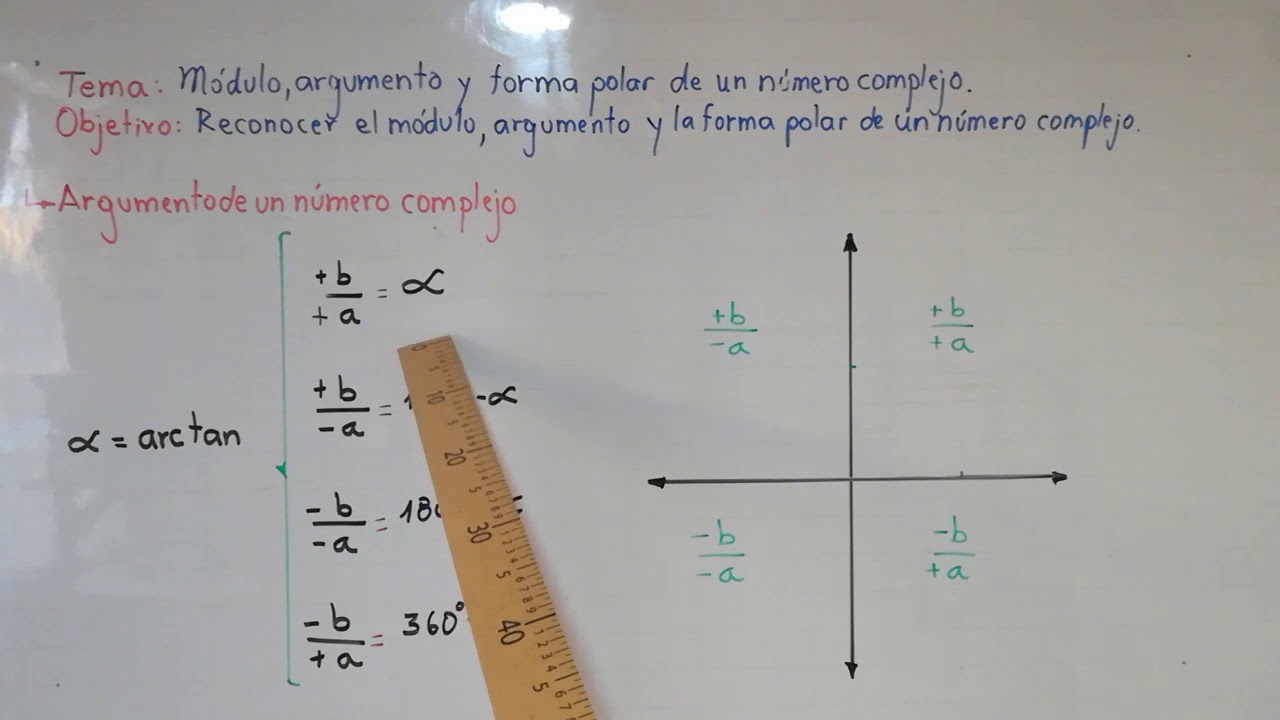 Tema: Módulo, argumento y forma polar de un número complejo.
Objetivo: Reconocer el módulo, argumento y la forma polar de un número complejo.
Argumento de un número complejo
α = arctan
+b/+a = α
+b/-a = -α
-b/-a = 18
-b/+a = 360°
+b/-a
+b/+a
-b/-a
-b/+a
0 5 10 5 20 5 30 5 40 5